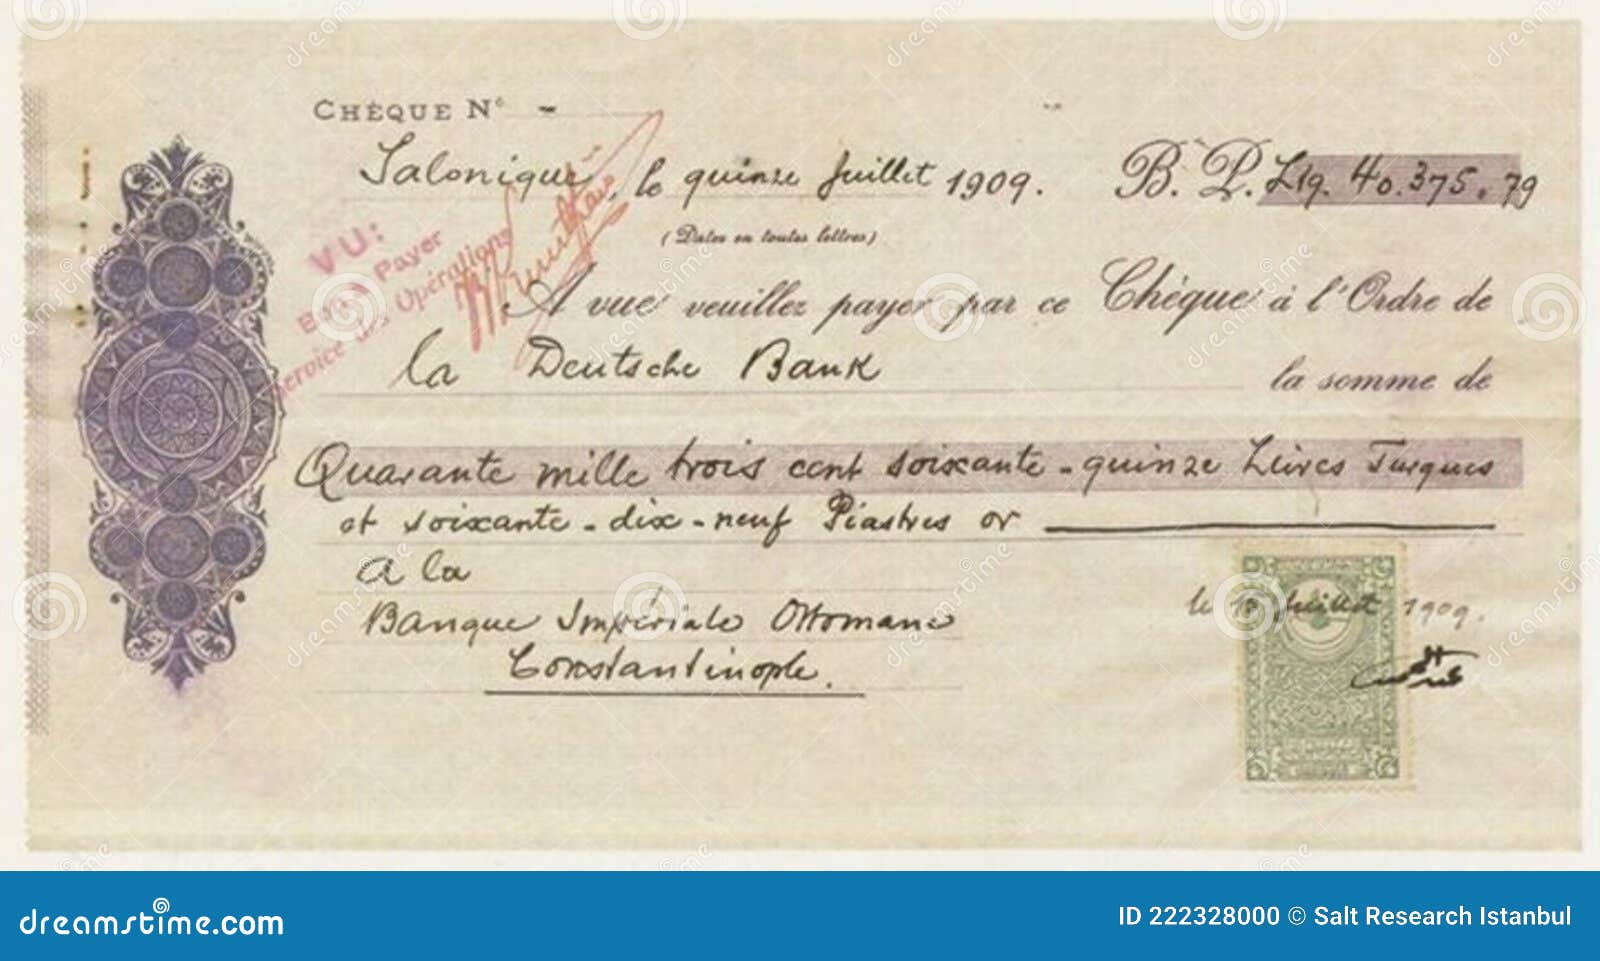 CHÈQUE Nº -
Salonique, le quinze Juillet 1909. B. P. Ltq. 40.375.79
(Dates en toutes lettres)
VU:
Bon à Payer
Service des Opérations
A vue veuillez payer par ce Chèque à l'Ordre de
la Deutsche Bank la somme de
Quarante mille trois cent soixante-quinze Livres Turques
et soixante-dix-neuf Piastres or
A la
Banque Impériale Ottomane
Constantinople.
le 15 Juillet 1909.
dreamstime.com
ID 222328000 © Salt Research Istanbul